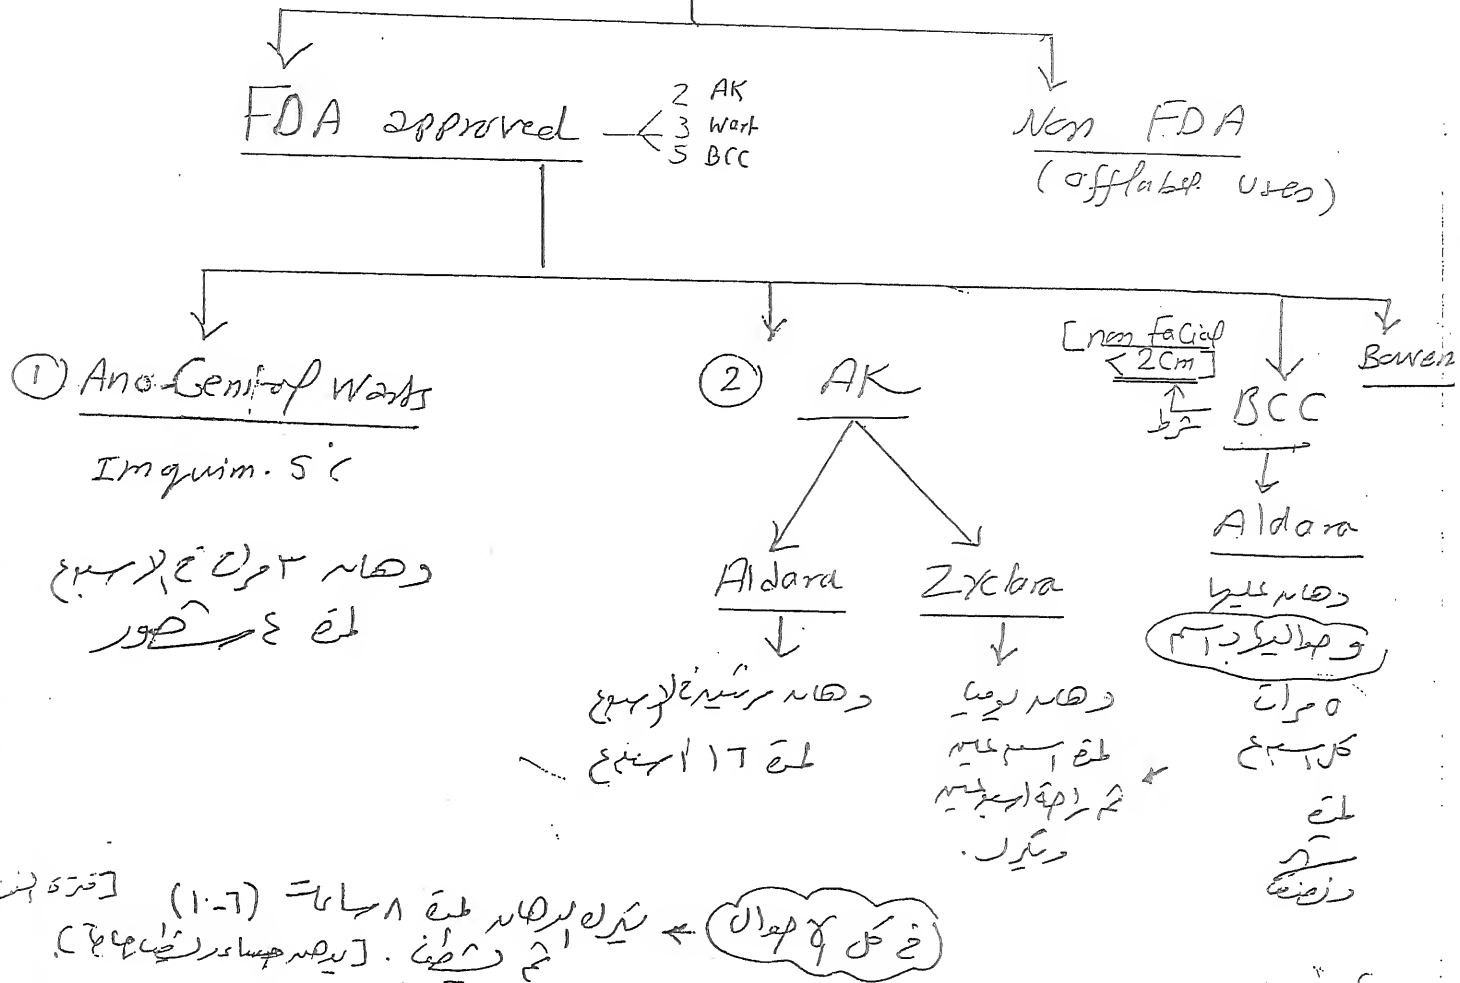 FDA approved
2 AK
3 Wart
5 BCC
Non FDA
(offlabel uses)
① Ano-Genital Warts
Imquim. 5%
دهان ٣ مرات في الاسبوع
لمدة ٤ شهور
② AK
Aldara
دهان مرتين في الاسبوع
لمدة ١٦ اسبوع
Zyclara
دهان يوميا
لمدة اسبوعين
ثم راحة اسبوعين
وتكرر.
[non Facial
< 2cm]
شرط
BCC
Aldara
دهان عليها
و حواليها ١ سم
٥ مرات
كل اسبوع
لمدة
شهر
ونصف
Bowen
في كل الاحوال
يترك الدهان لمدة ٨ ساعات (٦-١٠)
ثم يشطف. [يدهن مساء ويشطف صباحا].
[فترة